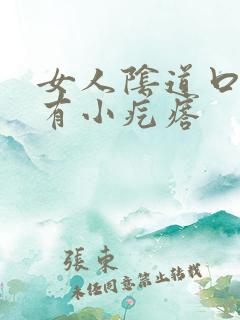 女人陰道口
有小疙瘩
張東
未经同意禁止转载